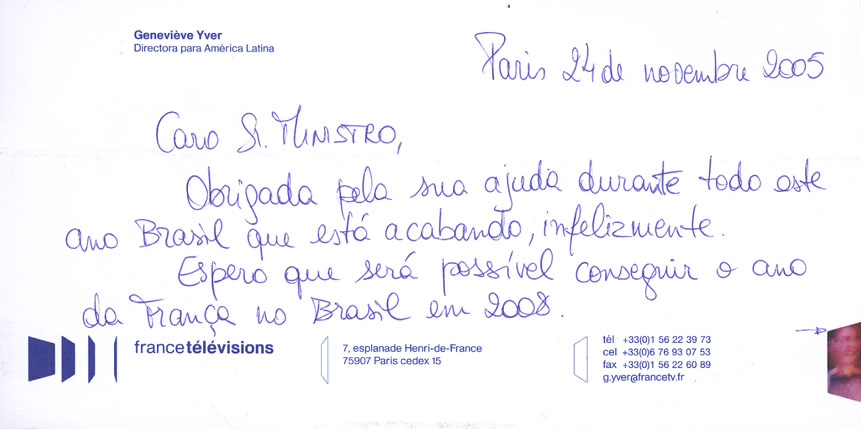 Geneviève Yver
Directora para América Latina
Paris 24 de novembre 2005
Caro Sr. MINISTRO,
Obrigada pela sua ajuda durante todo este
ano Brasil que está acabando, infelizmente.
Espero que será possível conseguir o ano
da França no Brasil em 2008.
francetélévisions
7, esplanade Henri-de-France
75907 Paris cedex 15
tél +33(0)1 56 22 39 73
cel +33(0)6 76 93 07 53
fax +33(0)1 56 22 60 89
g.yver@francetv.fr